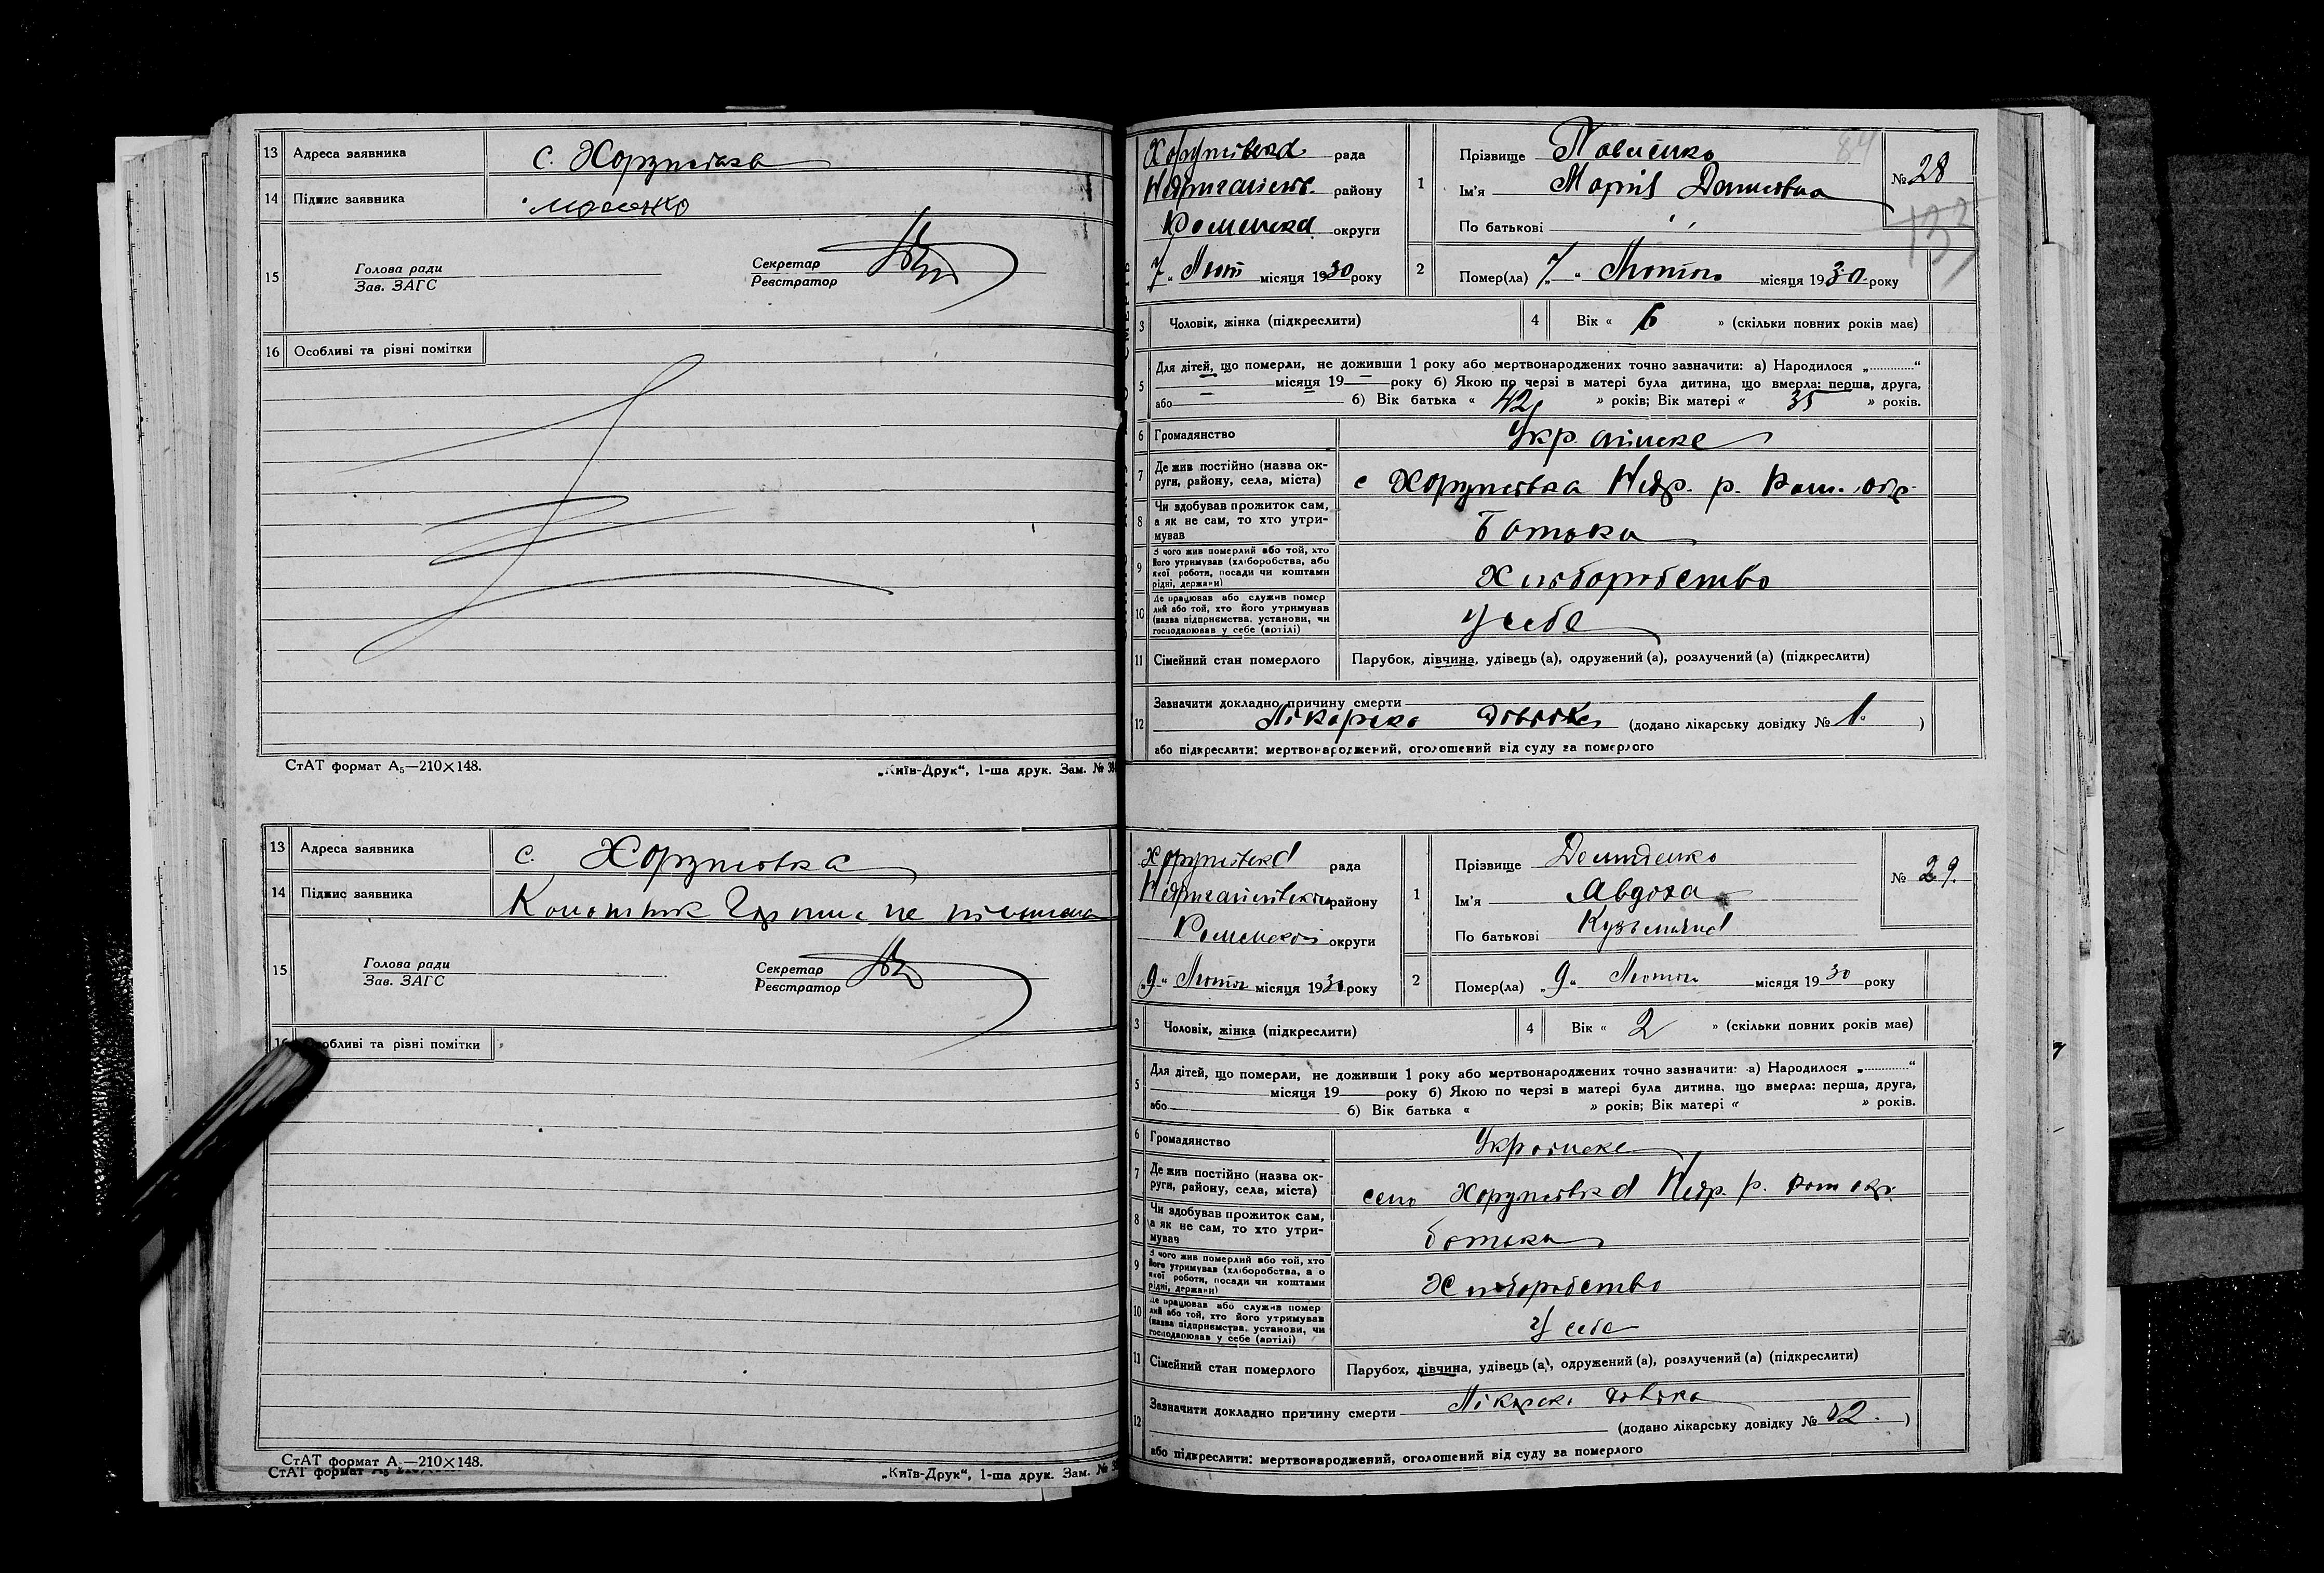 13 Адреса заявника с. Хоружівка
14 Підпис заявника
15 Голова ради
Зав. ЗАГС
Секретар
Реєстратор
16 Особливі та різні помітки
СтАТ формат А5—210×148.
„Київ-Друк“, 1-ша друк. Зам. №
Хоружівска рада
Недригайлівс. району
Роменска округи
„7“ Лют місяця 1930 року
1 Прізвище Павленко
84
Ім'я Марія Данилівна
По батькові
№ 28
133
2 Помер(ла) „7“ Лютого місяця 1930 року
3 Чоловік, жінка (підкреслити)
4 Вік « 6 » (скільки повних років має)
5 Для дітей, що померли, не доживши 1 року або мертвонароджених точно зазначити: а) Народилося „ “
місяця 19 року б) Якою по черзі в матері була дитина, що вмерла: перша, друга,
або б) Вік батька « 42 » років; Вік матері « 35 » років.
6 Громадянство Українске
7 Де жив постійно (назва округи, району, села, міста) с Хоружівка Недр. р. Ром. окр.
8 Чи здобував прожиток сам, а як не сам, то хто утримував Батько
9 З чого жив померлий або той, хто його утримував (хліборобства, або якої роботи, посади чи коштами рідні, держави) Хліборобство
10 Де працював або служив помер лий або той, хто його утримував (назва підприємства, установи, чи господарював у себе (артілі) У себе
11 Сімейний стан померлого Парубок, дівчина, удівець (а), одружений (а), розлучений (а) (підкреслити)
12 Зазначити докладно причину смерти
Лікарска довідка (додано лікарську довідку № 1. )
або підкреслити: мертвонароджений, оголошений від суду за померлого
13 Адреса заявника с. Хоружівка
14 Підпис заявника
15 Голова ради
Зав. ЗАГС
Секретар
Реєстратор
16 Особливі та різні помітки
СтАТ формат А —210×148.
СтАТ формат А5
„Київ-Друк“, 1-ша друк. Зам. №
Хоружівска рада
Недригайлівского району
Роменскої округи
„9“ Лютого місяця 1930 року
1 Прізвище Демиденко
Ім'я Авдоха
По батькові Кузьмівна
№ 29.
2 Помер(ла) „9“ Лютого місяця 1930 року
3 Чоловік, жінка (підкреслити)
4 Вік « 2 » (скільки повних років має)
5 Для дітей, що померли, не доживши 1 року або мертвонароджених точно зазначити: а) Народилося „ “
місяця 19 року б) Якою по черзі в матері була дитина, що вмерла: перша, друга,
або б) Вік батька « » років; Вік матері « » років.
6 Громадянство Українске
7 Де жив постійно (назва округи, району, села, міста) село Хоружівка Недр. р. Ром окр.
8 Чи здобував прожиток сам, а як не сам, то хто утримував батько
9 З чого жив померлий або той, хто його утримував (хліборобства, або якої роботи, посади чи коштами рідні, держави) Хліборобство
10 Де працював або служив помер лий або той, хто його утримував (назва підприємства, установи, чи господарював у себе (артілі) У себе
11 Сімейний стан померлого Парубок, дівчина, удівець (а), одружений (а), розлучений (а) (підкреслити)
12 Зазначити докладно причину смерти Лікарска довідка
(додано лікарську довідку № 2. )
або підкреслити: мертвонароджений, оголошений від суду за померлого